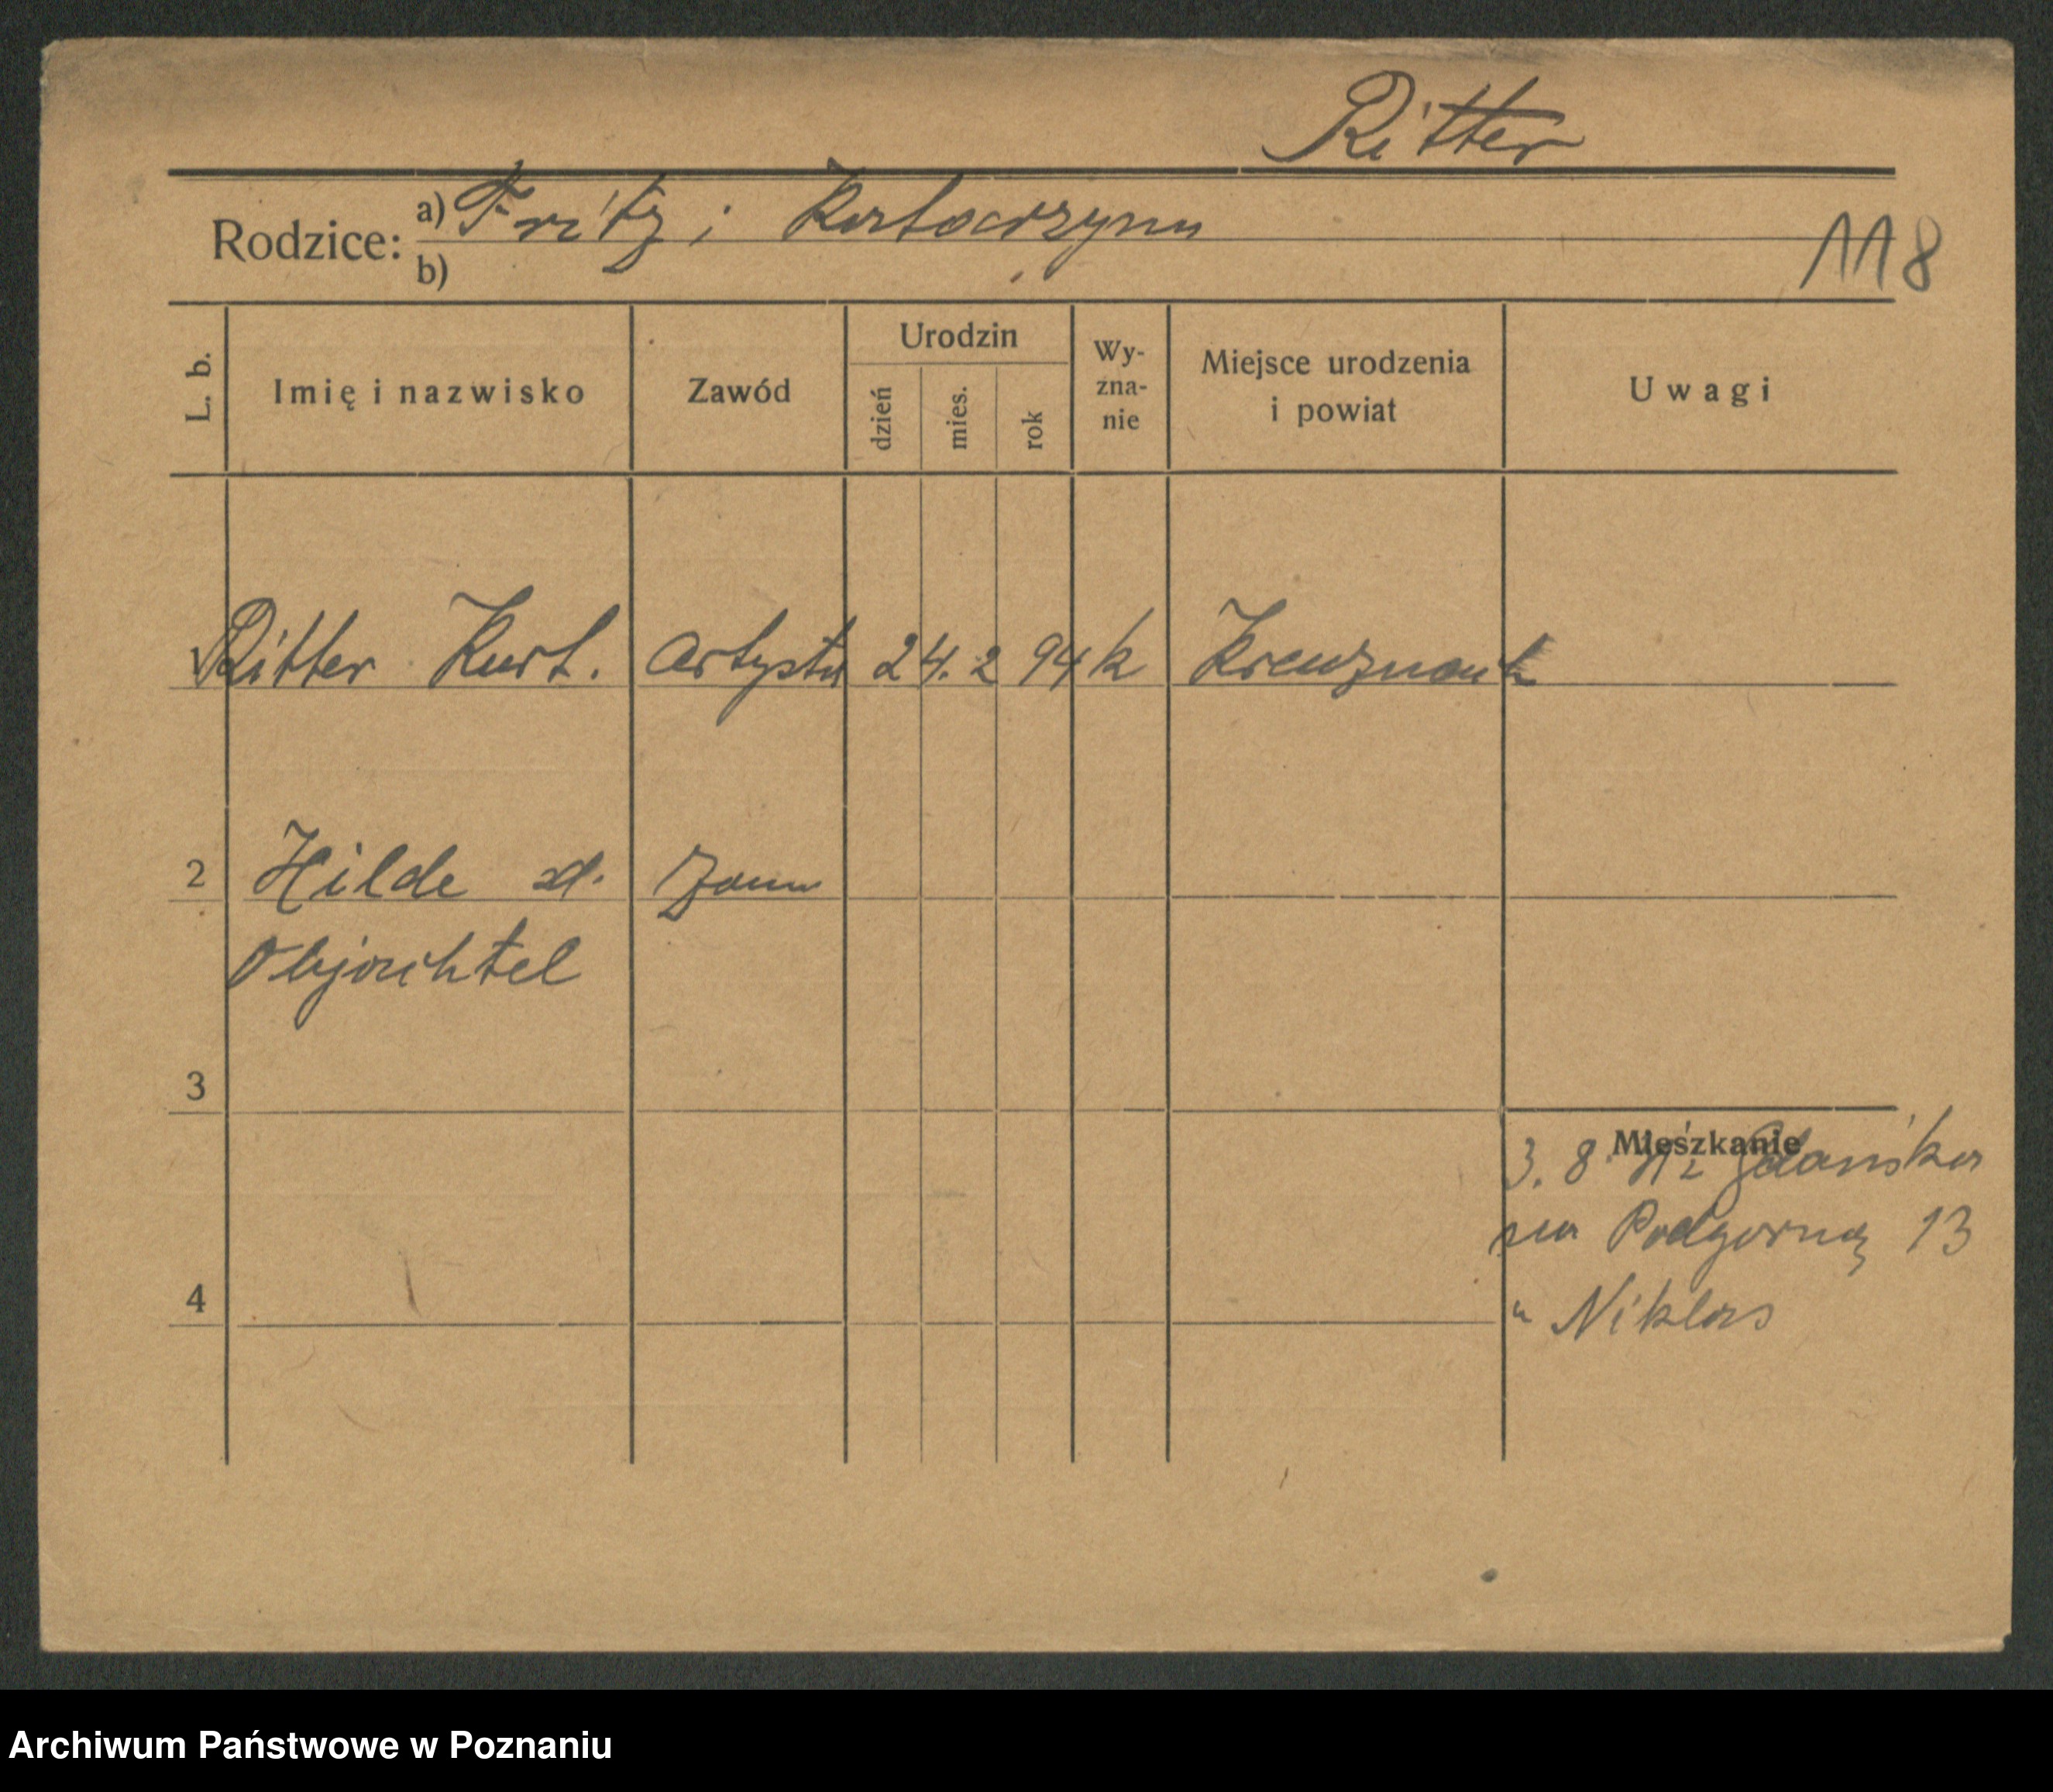 Ritter
Rodzice: a) Fritz i Katarzyna
b)
118
L. b. Imię i nazwisko Zawód Urodzin dzień mies. rok Wy-zna-nie Miejsce urodzenia i powiat Uwagi
1 Ritter Kurt. artysta 24. 2 94 k Kreuznach
2 Hilde d. żona
3
Mieszkanie
3. 8 z Gdańska
na Podgórną 13
4
u Niklas
Archiwum Państwowe w Poznaniu